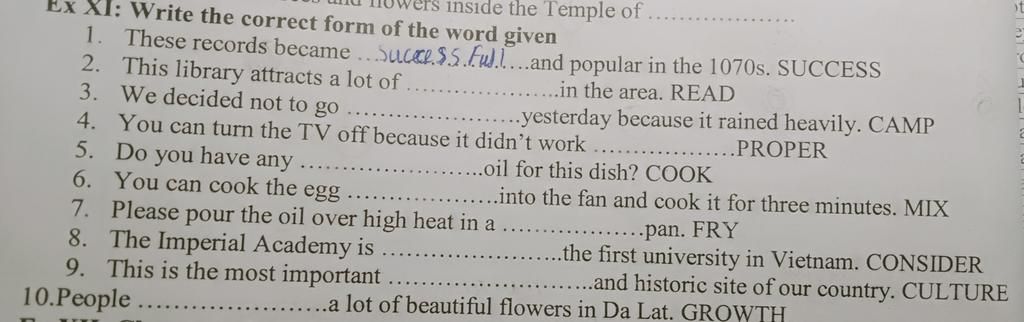 and flowers inside the Temple of ..................
Ex XI: Write the correct form of the word given
1. These records became ...success.full....and popular in the 1070s. SUCCESS
2. This library attracts a lot of .......................in the area. READ
3. We decided not to go ..........................yesterday because it rained heavily. CAMP
4. You can turn the TV off because it didn't work .....................PROPER
5. Do you have any ...........................oil for this dish? COOK
6. You can cook the egg ......................into the fan and cook it for three minutes. MIX
7. Please pour the oil over high heat in a .....................pan. FRY
8. The Imperial Academy is ...........................the first university in Vietnam. CONSIDER
9. This is the most important ...............................and historic site of our country. CULTURE
10.People ............................a lot of beautiful flowers in Da Lat. GROWTH